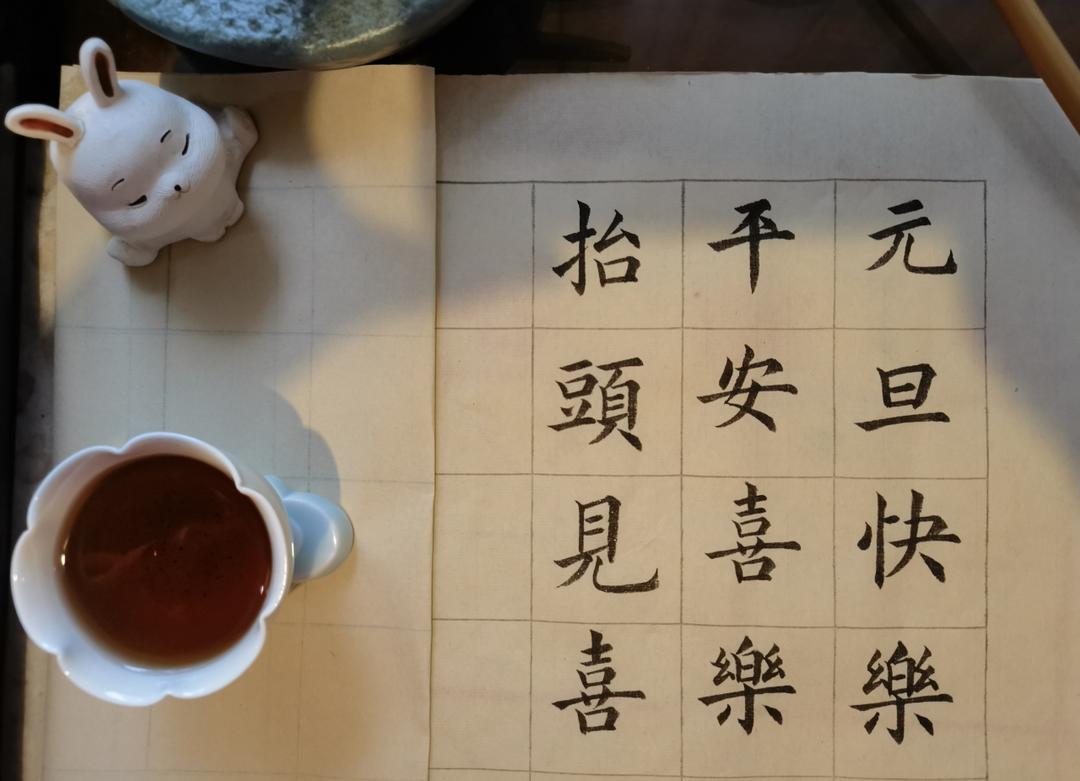 元旦快樂
平安喜樂
抬頭見喜